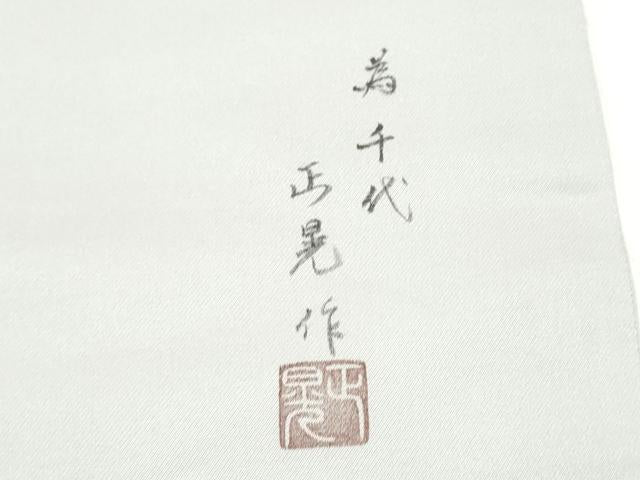 為千代
正晃作
正晃